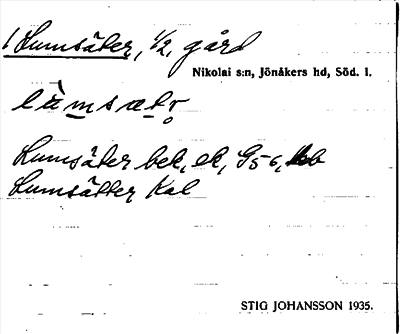 1 Lumsäter, 1/2, gård
Nikolai s:n, Jönåkers hd, Söd. l.
Lumsäter bek, ek, G56,
Lumsätter Kal
STIG JOHANSSON 1935.